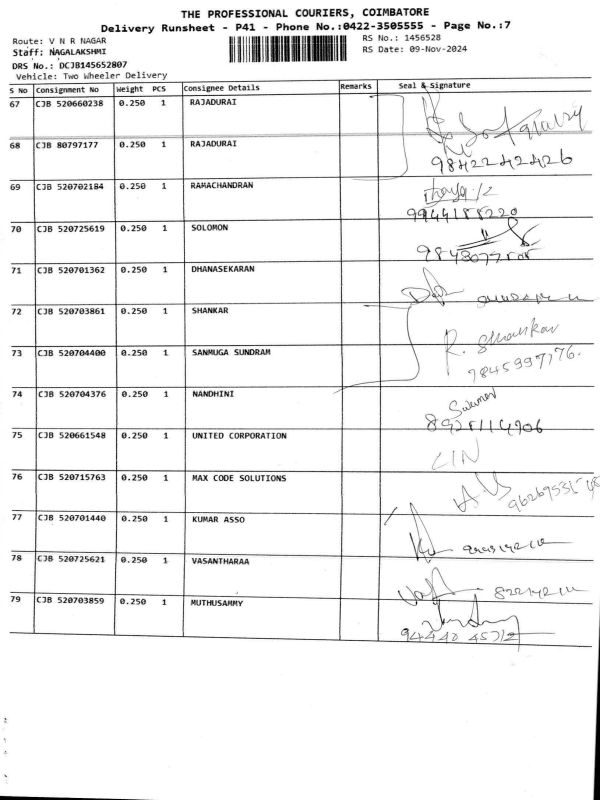 THE PROFESSIONAL COURIERS, COIMBATORE
Delivery Runsheet - P41 - Phone No.:0422-3505555 - Page No.:7
Route: V N R NAGAR
RS No.: 1456528
Staff: NAGALAKSHMI
RS Date: 09-Nov-2024
DRS No.: DCJB145652807
Vehicle: Two Wheeler Delivery
S No Consignment No Weight PCS Consignee Details Remarks Seal & Signature
67 CJB 520660238 0.250 1 RAJADURAI
68 CJB 80797177 0.250 1 RAJADURAI
9842242426
69 CJB 520702184 0.250 1 RAMACHANDRAN
9944188220
70 CJB 520725619 0.250 1 SOLOMON
71 CJB 520701362 0.250 1 DHANASEKARAN
72 CJB 520703861 0.250 1 SHANKAR
R. Shankar
73 CJB 520704400 0.250 1 SANMUGA SUNDRAM
9845997776.
74 CJB 520704376 0.250 1 NANDHINI
75 CJB 520661548 0.250 1 UNITED CORPORATION
76 CJB 520715763 0.250 1 MAX CODE SOLUTIONS
77 CJB 520701440 0.250 1 KUMAR ASSO
78 CJB 520725621 0.250 1 VASANTHARAA
79 CJB 520703859 0.250 1 MUTHUSAMMY
94440 45712